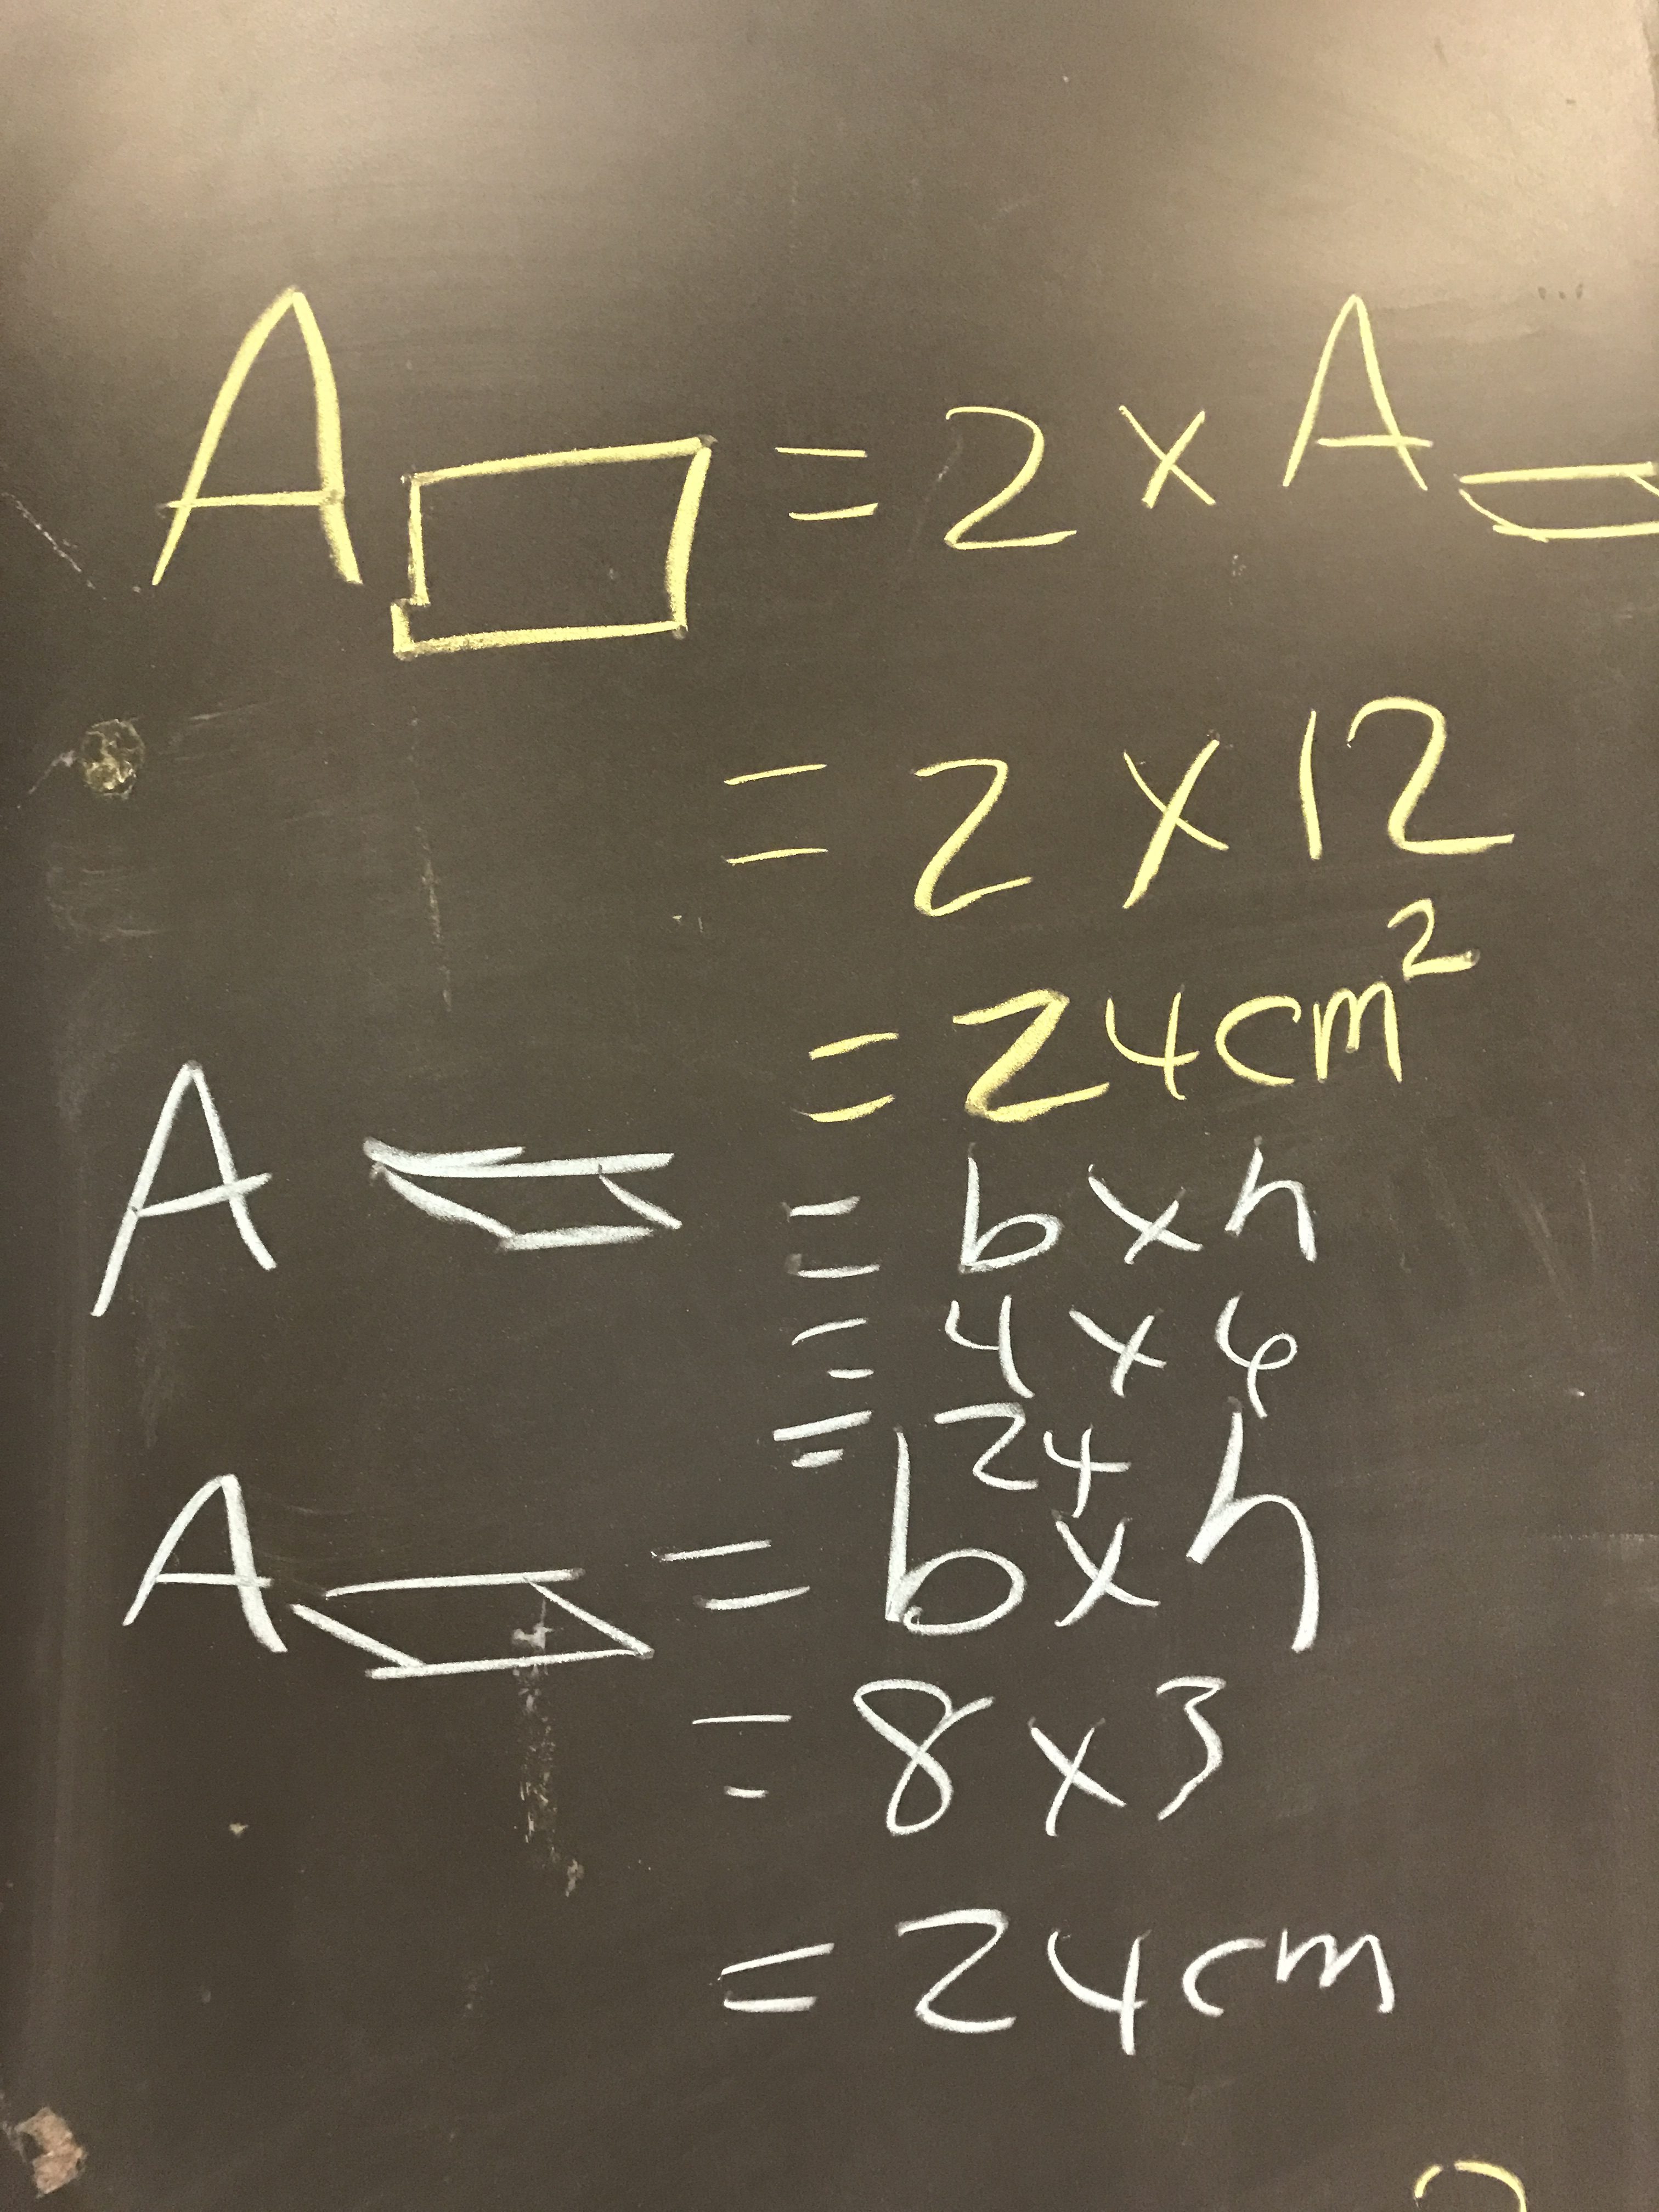 A▭ = 2 × A▱
= 2 × 12
= 24cm²
A▱ = b×h
= 4×6
= 24
A▱ = b×h
= 8×3
= 24cm